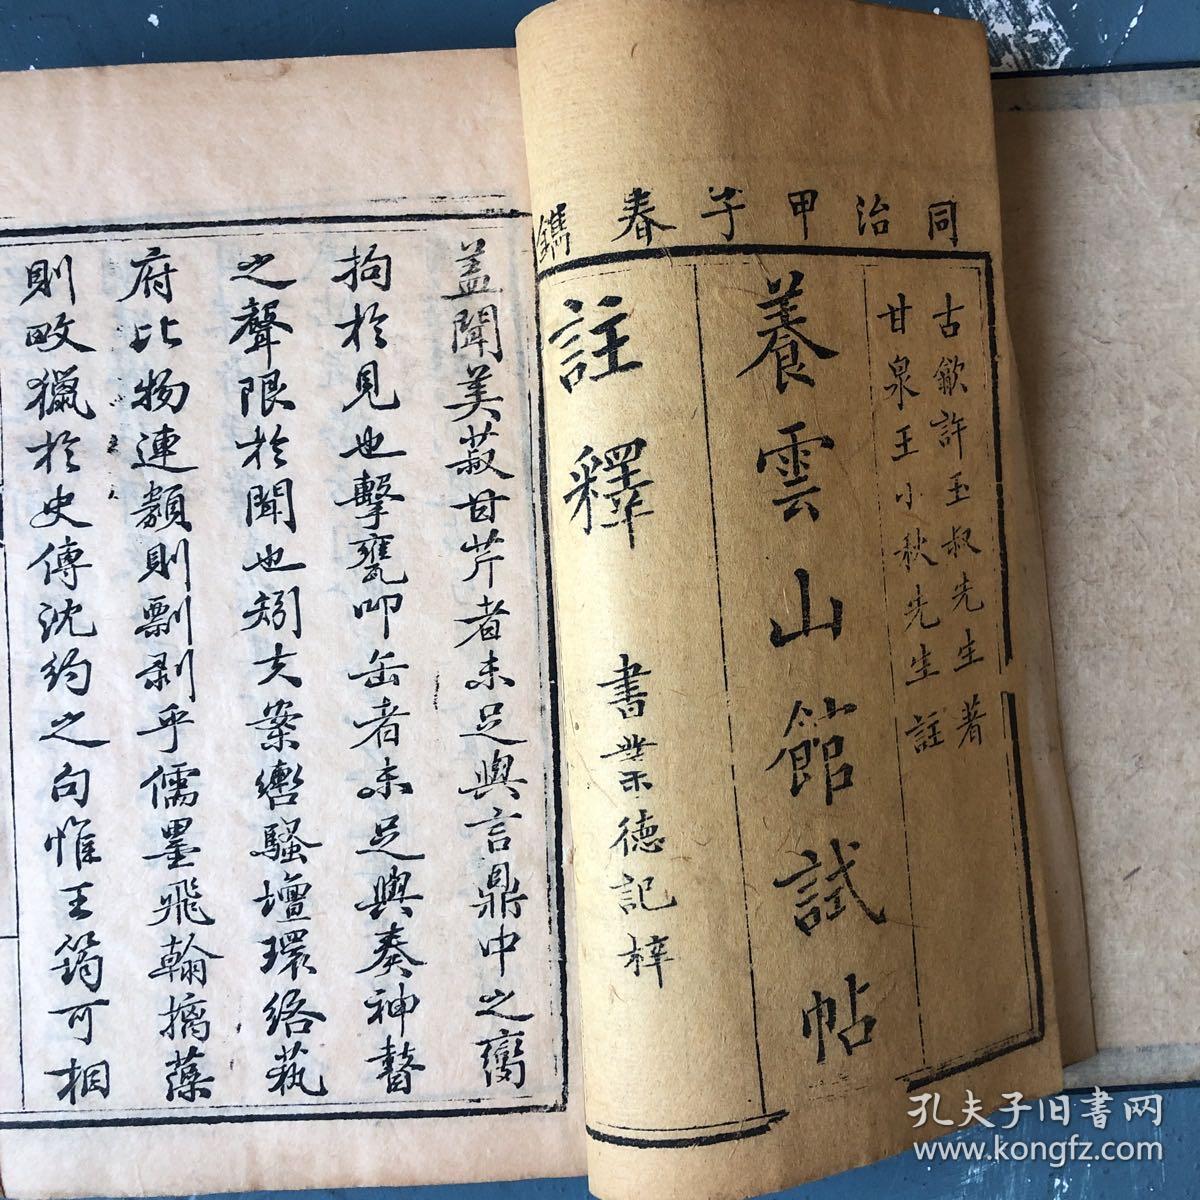 同治甲子春鐫
古歙許玉叔先生著
甘泉王小秋先生註
養雲山館試帖
註釋
書業德記梓
蓋聞美菽甘芹者未足與言鼎中之臠
拘於見也擊甕叩缶者未足與奏神瞽
之聲限於聞也矧夫案轡騷壇環絡藝
府比物連類則剽剥乎儒墨飛翰摛藻
則畋獵於史傳沈約之句惟王筠可相
孔夫子旧书网
www.kongfz.com